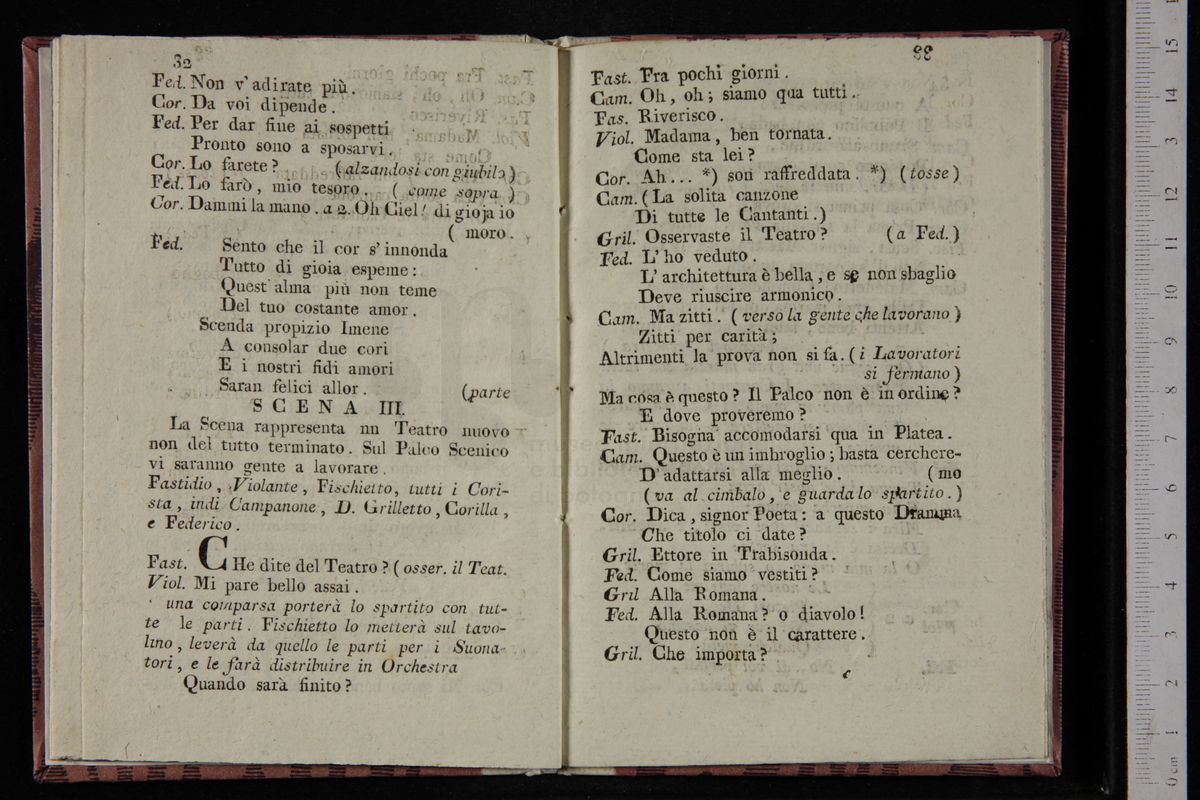 32
Fed. Non v' adirate più.
Cor. Da voi dipende.
Fed. Per dar fine ai sospetti
Pronto sono a sposarvi.
Cor. Lo farete? (alzandosi con giubilo)
Fed. Lo farò, mio tesoro. ( come sopra )
Cor. Dammi la mano. a 2. Oh Ciel! di gioja io
( moro.
Fed. Sento che il cor s' innonda
Tutto di gioia espeme:
Quest' alma più non teme
Del tuo costante amor.
Scenda propizio Imene
A consolar due cori
E i nostri fidi amori
Saran felici allor. (parte
SCENA III.
La Scena rappresenta un Teatro nuovo
non del tutto terminato. Sul Palco Scenico
vi saranno gente a lavorare.
Fastidio, Violante, Fischietto, tutti i Cori-
sta, indi Campanone, D. Grilletto, Corilla,
e Federico.
Fast. CHe dite del Teatro? ( osser. il Teat.
Viol. Mi pare bello assai.
' una comparsa porterà lo spartito con tut-
te le parti. Fischietto lo metterà sul tavo-
lino, leverà da quello le parti per i Suona-
tori, e le farà distribuire in Orchestra
Quando sarà finito?
33
Fast. Fra pochi giorni.
Cam. Oh, oh; siamo qua tutti.
Fas. Riverisco.
Viol. Madama, ben tornata.
Come sta lei?
Cor. Ah... *) son raffreddata. *) (tosse)
Cam. (La solita canzone
Di tutte le Cantanti.)
Gril. Osservaste il Teatro? (a Fed.)
Fed. L' ho veduto.
L' architettura è bella, e se non sbaglio
Deve riuscire armonico.
Cam. Ma zitti. ( verso la gente che lavorano )
Zitti per carità;
Altrimenti la prova non si fa. ( i Lavoratori
si fermano )
Ma cosa è questo? Il Palco non è in ordine?
E dove proveremo?
Fast. Bisogna accomodarsi qua in Platea.
Cam. Questo è un imbroglio; basta cerchere-
D' adattarsi alla meglio. (mo
( va al cimbalo, e guarda lo spartito.)
Cor. Dica, signor Poeta: a questo Dramma
Che titolo ci date?
Gril. Ettore in Trabisonda.
Fed. Come siamo vestiti?
Gril Alla Romana.
Fed. Alla Romana? o diavolo!
Questo non è il carattere.
Gril. Che importa?
c
15
14
13
12
11
10
9
8
7
6
5
4
3
2
1
0 cm